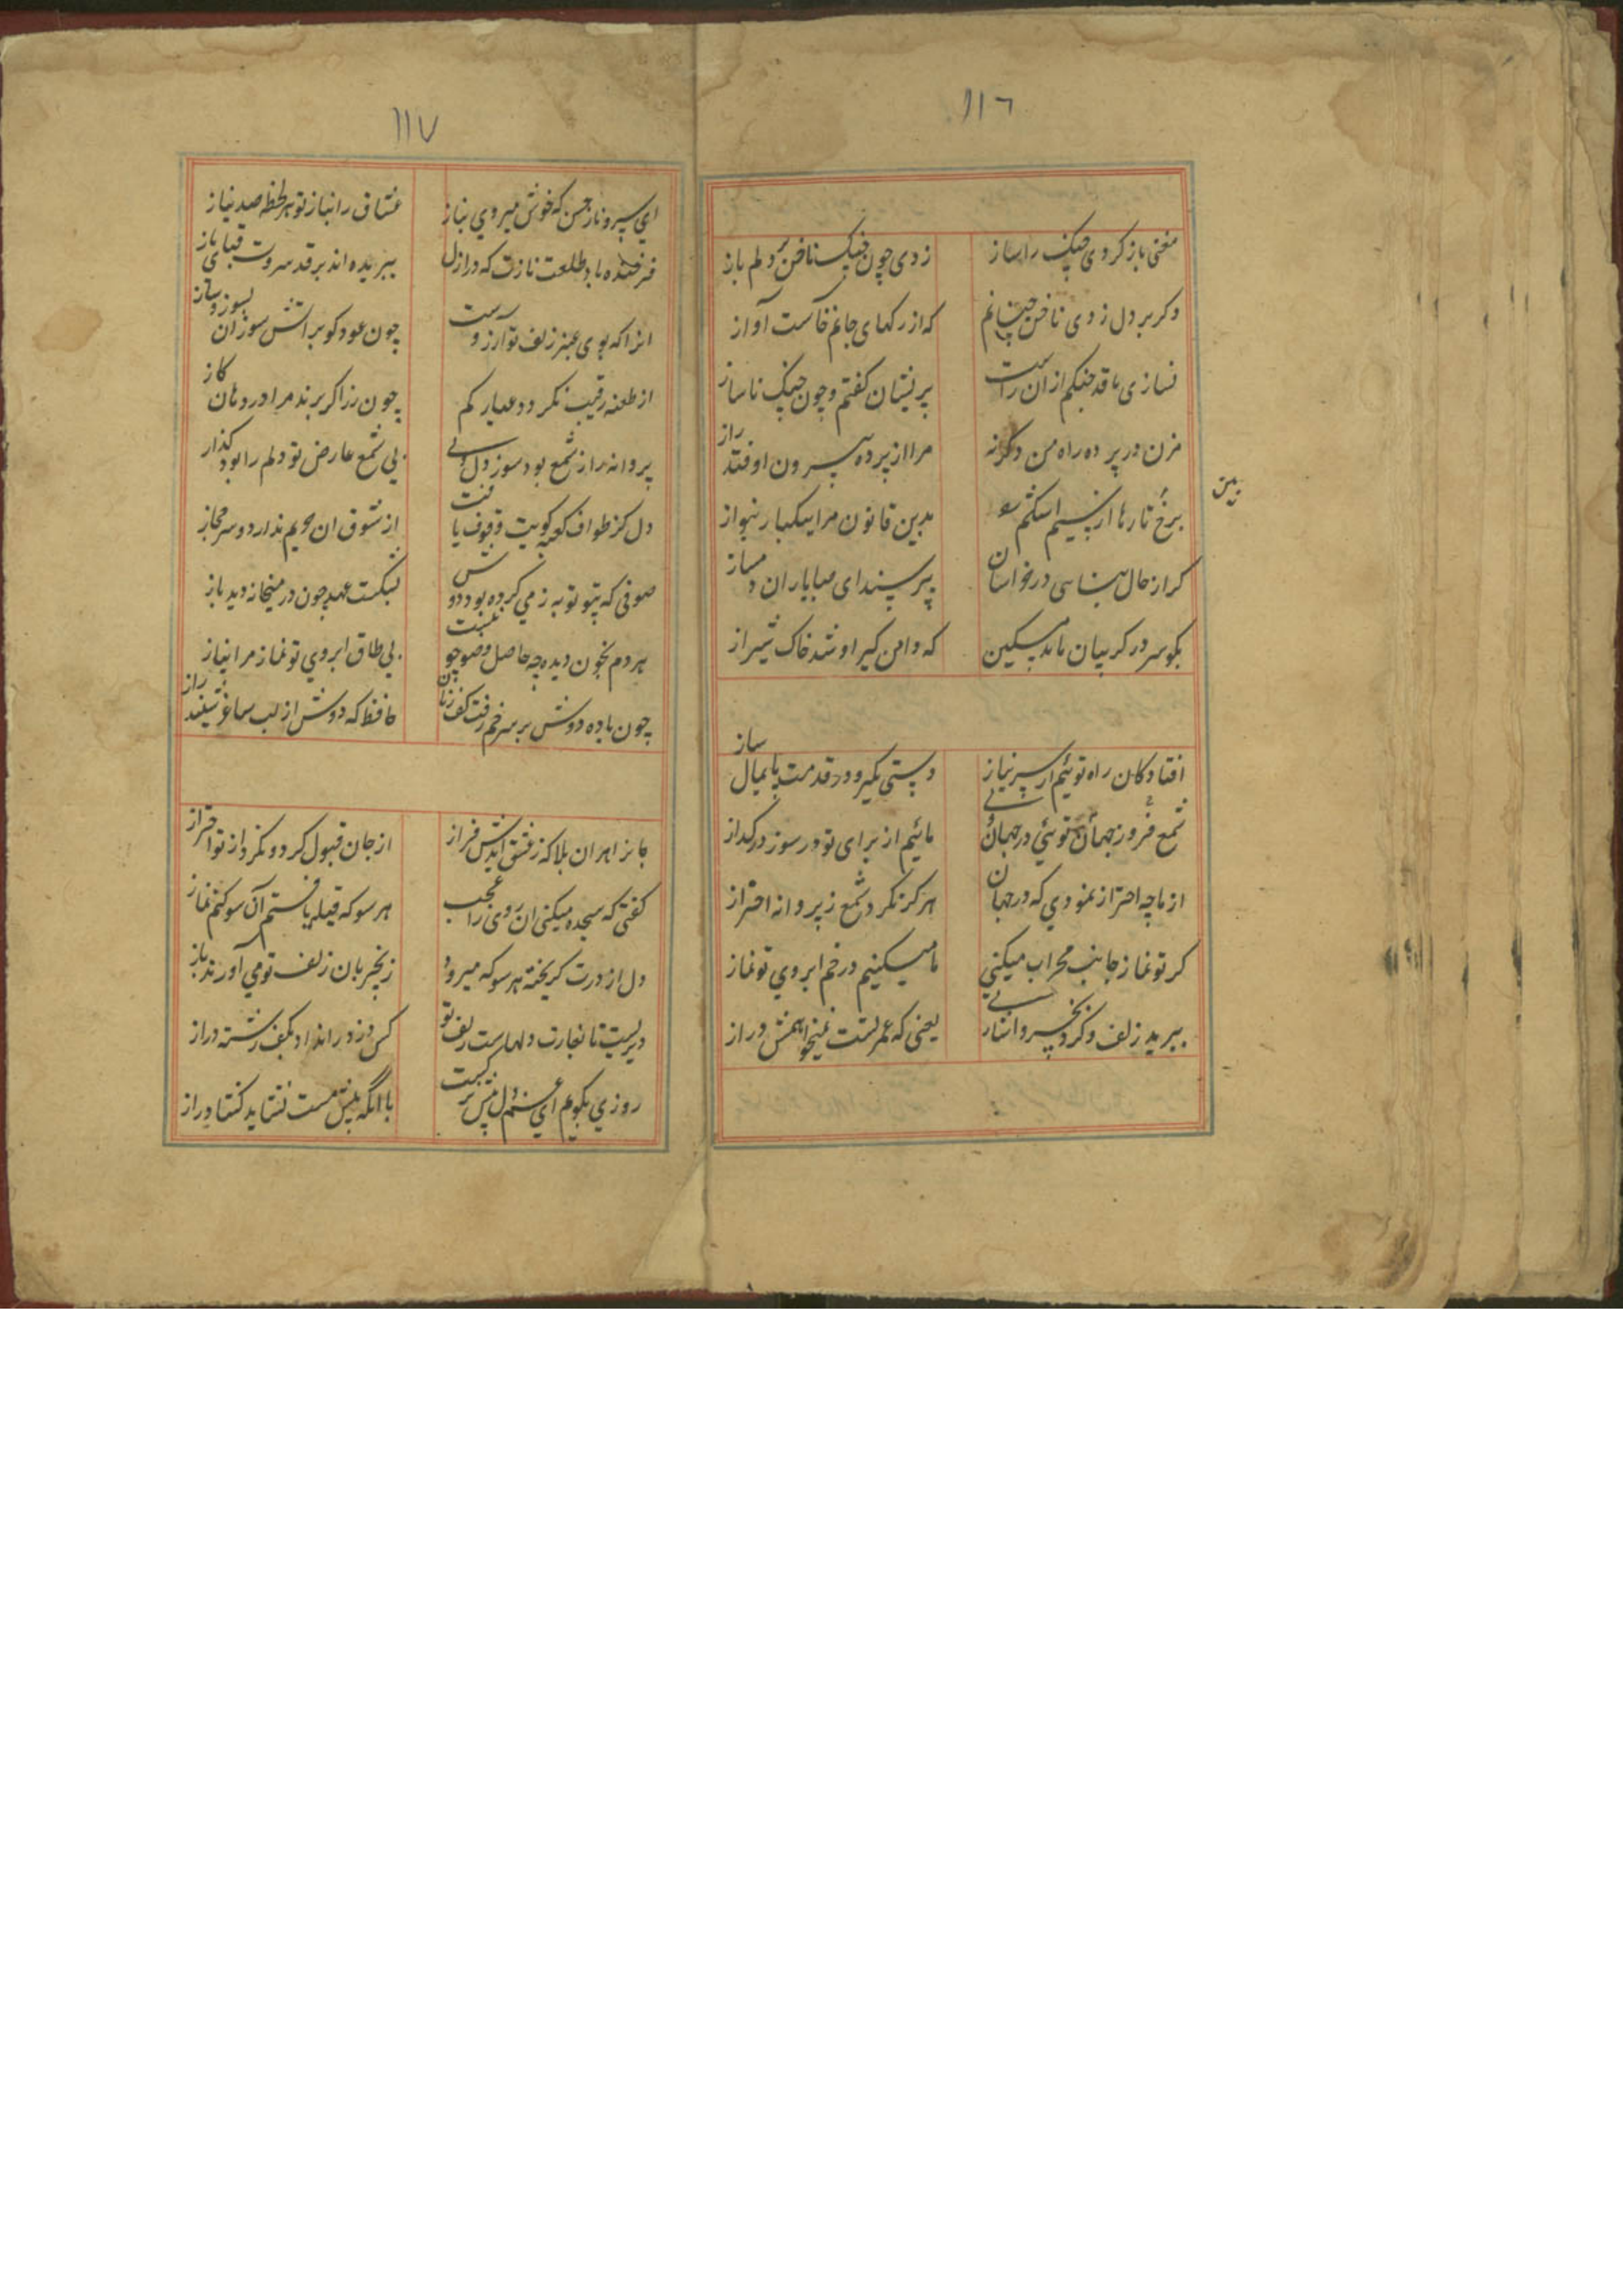 ١١٦
مغنی باز کردی چنک را ساز
زدی چون چنک ناخن بر دلم باز
وکر بر دل زدی ناخن چنانم
که از رکهای جانم خاست آواز
نسازی با قد چنکم ازان راست
پریشان کفتم و چون چنک ناساز
مزن در پرده راه من دکرنه
مرا از پرده بیرون اوفتد راز
برخ تارها از سیم اشکم
بدین قانون مرا یکبار بنواز
کر از حال سناسی در خراسان
بپرسند ای صبا یاران دمساز
بکو سر در کریبان ماند مسکین
که دامن کیر او شد خاک شیراز
افتادکان راه توئیم از سر نیاز
دستی بکیر و در قدمت پایمال ساز
شمع فروز جهان توئی در جهان
مائیم از برای تو در سوز در کداز
از ما چه احتراز نمودی که در جهان
هرکز نکرد شمع ز پروانه احتراز
کر تو نماز جانب محراب میکنی
ما میکنیم در خم ابروی تو نماز
ببرید زلف و کرد بخسرو اشارتی
یعنی که عمر تست نمیخواهمش دراز
١١٧
ای سرو ناز حسن که خوش میروی بناز
عشاق را بناز تو هر لحظه صد نیاز
فرخنده باد طلعت نازت که در ازل
ببریده اند بر قد سروت قبای ناز
انرا که بوی عنبر زلف تو آرزوست
چون عود کو بر اتش سوزان بسوز و ساز
از طعنه رقیب نکردد عیار کم
چون زر اکر برند مرا در دهان کاز
پروانه را ز شمع بود سوز دل ولی
بی شمع عارض تو دلم را بود کداز
دل کز طواف کعبه کویت وقوف یافت
از شوق ان حریم ندارد سر حجاز
صوفی که بیتو توبه ز می کرده بود دوش
بشکست عهد چون در میخانه دید باز
هر دم بخون دیده چه حاصل وضو چو نیست
بی طاق ابروی تو نماز مرا نیاز
چون باده دوش بر سر خم رفت کف زنان
حافظ که دوش از لب ساغر شنید راز
جانرا هران بلا که ز عشق ایدش فراز
از جان قبول کرد و نکرد از تو احتراز
کفتی که سجده میکنی ان روی را عجب
هر سو که قبله یافتم آن سو کنم نماز
دل از درت کریخته هر سو که میرود
زنجیربان زلف تو می آوردند باز
دیریست تا بغارت دلهاست زلف تو
کس دزد را نداد بکف رشته دراز
روزی بکویم ای
با آنکه پیش مست نشاید کشاد راز